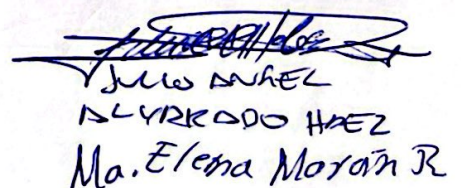 JULIO ANGEL
ALVARADO HAEZ
Ma. Elena Morán R